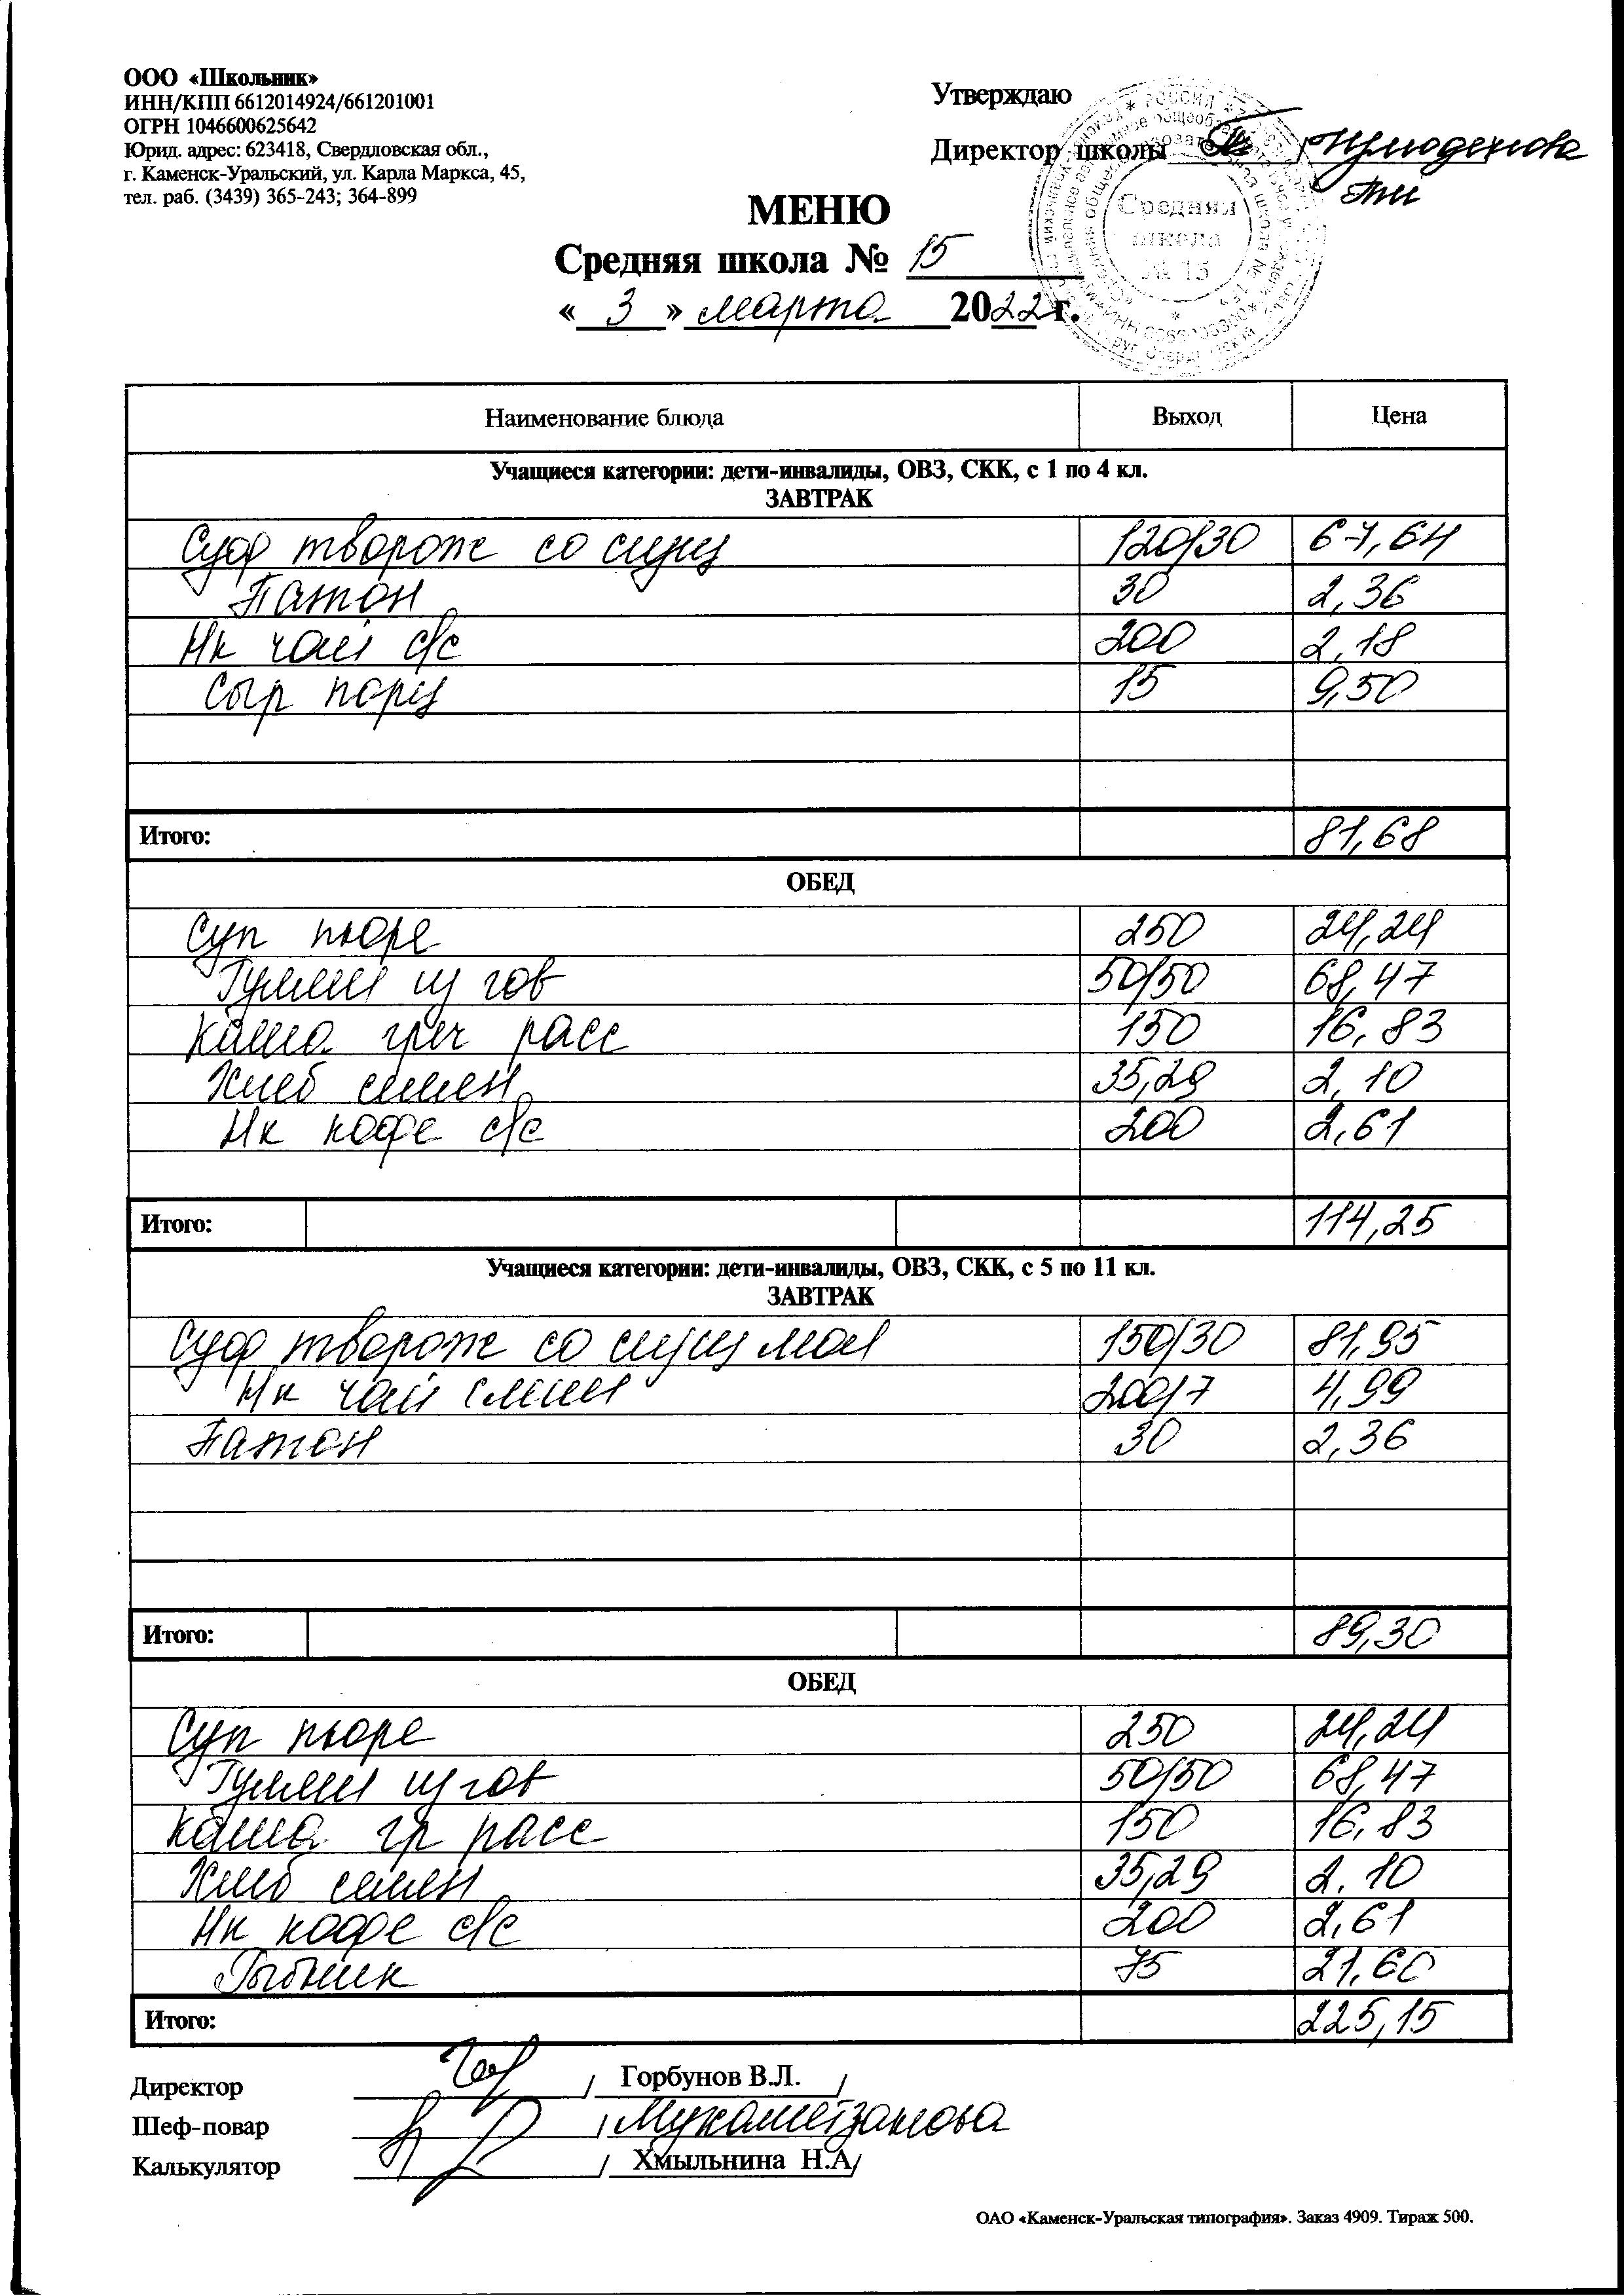 ООО «Школьник»
ИНН/КПП 6612014924/661201001
ОГРН 1046600625642
Юрид. адрес: 623418, Свердловская обл.,
г. Каменск-Уральский, ул. Карла Маркса, 45,
тел. раб. (3439) 365-243; 364-899
Утверждаю
Директор школы
Средняя
школа
№ 15
МЕНЮ
Средняя школа № 15
« 3 » марта 2022 г.
Наименование блюда Выход Цена
Учащиеся категории: дети-инвалиды, ОВЗ, СКК, с 1 по 4 кл.
ЗАВТРАК
Суф творож со сгущ 120/30 67,64
Батон 30 2,36
Нк чай с/с 200 2,18
Сыр порц 15 9,50
Итого: 81,68
ОБЕД
Суп пюре 250 24,24
Гуляш из гов 50/50 68,47
Каша греч расс 150 16,83
Хлеб 35,29 2,10
Нк кофе с/с 200 2,61
Итого: 114,25
Учащиеся категории: дети-инвалиды, ОВЗ, СКК, с 5 по 11 кл.
ЗАВТРАК
Суф творож со сгущ мол 150/30 81,95
Нк чай слим 200/7 4,99
Батон 30 2,36
Итого: 89,30
ОБЕД
Суп пюре 250 24,24
Гуляш из гов 50/50 68,47
Каша гр расс 150 16,83
Хлеб 35,29 2,10
Нк кофе с/с 200 2,61
Рыбник 75 21,60
Итого: 225,15
Директор / Горбунов В.Л. /
Шеф-повар / Мухаметзанова
Калькулятор / Хмыльнина Н.А/
ОАО «Каменск-Уральская типография». Заказ 4909. Тираж 500.